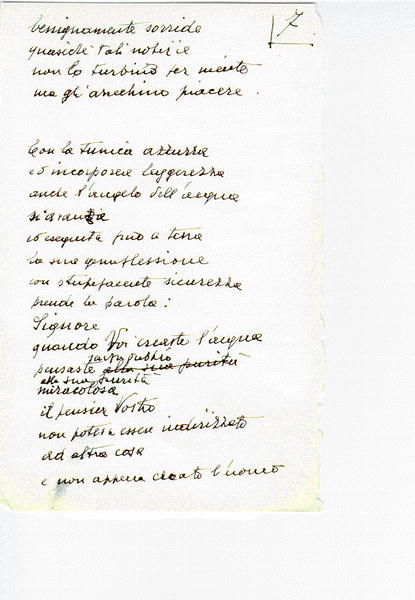 7
benignamente sorride
quasiché tali notizie
non lo turbino per niente
ma gli arrechino piacere.
Con la tunica azzurra
ed incorporea leggerezza
anche l'angelo dell'acqua
si avanza
ed eseguita fino a terra
la sua genuflessione
con stupefacente sicurezza
prende la parola:
Signore
quando Voi creaste l'acqua
pensaste alla sua purità
alla sua purità
miracolosa
il pensier Vostro
non poteva essere indirizzato
ad altra cosa
e non appena creato l'uomo